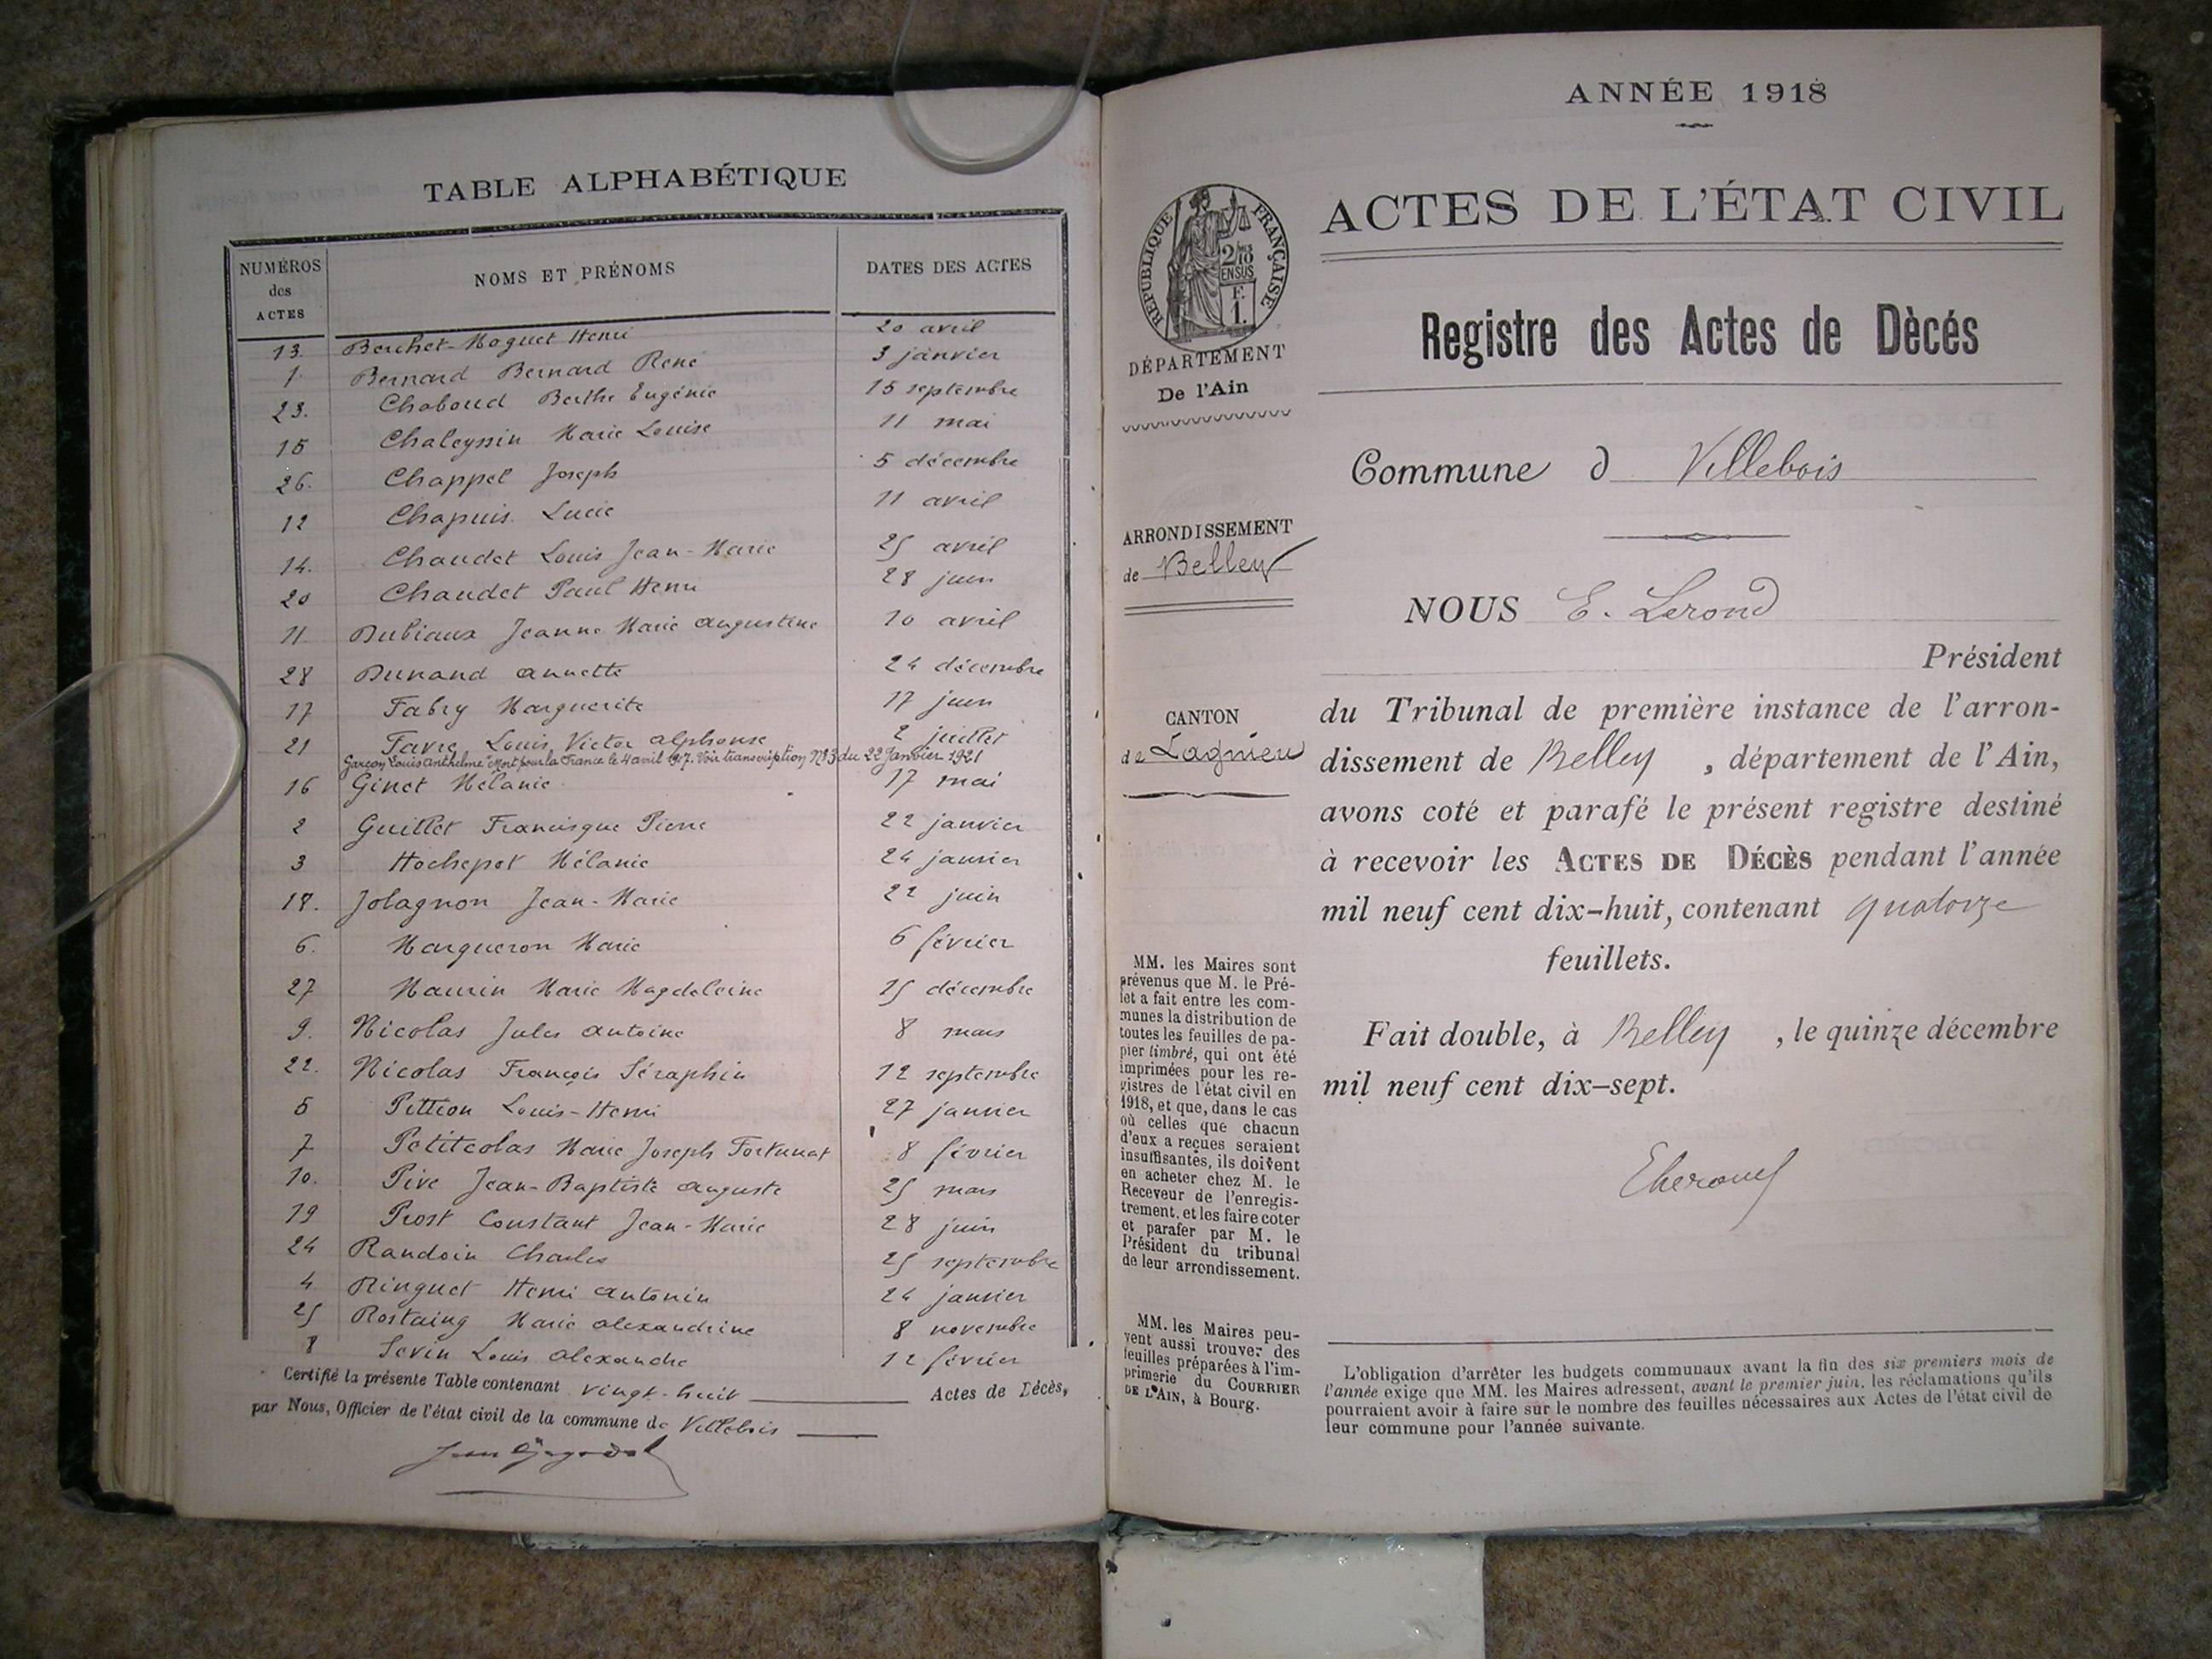 TABLE ALPHABÉTIQUE
NUMÉROS des ACTES NOMS ET PRÉNOMS DATES DES ACTES
13. Berchet-Moguet Henri 20 avril
1. Bernard Bernard René 3 janvier
23. Chaboud Berthe Eugénie 15 septembre
15 Chaleyssin Marie Louise 11 mai
26. Chappel Joseph 5 décembre
12 Chapuis Lucie 11 avril
14. Chaudet Louis Jean-Marie 25 avril
20 Chaudet Paul Henri 28 juin
11 Dubiaux Jeanne Marie Augustine 10 avril
28 Dunand Annette 24 décembre
17 Fabry Marguerite 17 juin
21 Favre Louis Victor Alphonse 2 juillet
Garçon Louis Anthelme Mort pour la France le 4 avril 1917. Voir transcription N° 3 du 22 Janvier 1921
16 Ginet Mélanie 17 mai
2 Guillet Francisque Pierre 22 janvier
3 Hochepot Mélanie 24 janvier
18. Jolagnon Jean-Marie 22 juin
6. Margueron Marie 6 février
27 Maurin Marie Magdeleine 15 décembre
9. Nicolas Jules Antoine 8 mars
22. Nicolas François Séraphin 12 septembre
5 Pittion Louis-Henri 27 janvier
7 Petitcolas Marie Joseph Fortunat 8 février
10. Pive Jean-Baptiste Auguste 25 mars
19 Prost Constant Jean-Marie 28 juin
24 Randoin Charles 25 septembre
4 Ringuet Henri Antonin 24 janvier
25 Rostaing Marie Alexandrine 8 novembre
8 Sevin Louis Alexandre 12 février
Certifié la présente Table contenant vingt-huit Actes de Décès,
par Nous, Officier de l'état civil de la commune de Villebois
ANNÉE 1918
ACTES DE L'ÉTAT CIVIL
RÉPUBLIQUE FRANÇAISE
2/10
EN SUS
F.
1.
DÉPARTEMENT
De l'Ain
Registre des Actes de Dècés
Commune d Villebois
ARRONDISSEMENT
de Belley
NOUS E. Lerond
Président
CANTON
de Lagnieu
du Tribunal de première instance de l'arron-
dissement de Belley , département de l'Ain,
avons coté et parafé le présent registre destiné
à recevoir les ACTES DE DÉCÈS pendant l'année
mil neuf cent dix-huit, contenant quatorze
feuillets.
Fait double, à Belley , le quinze décembre
mil neuf cent dix-sept.
MM. les Maires sont
prévenus que M. le Pré-
fet a fait entre les com-
munes la distribution de
toutes les feuilles de pa-
pier timbré, qui ont été
imprimées pour les re-
gistres de l'état civil en
1918, et que, dans le cas
où celles que chacun
d'eux a reçues seraient
insuffisantes, ils doivent
en acheter chez M. le
Receveur de l'enregis-
trement, et les faire coter
et parafer par M. le
Président du tribunal
de leur arrondissement.
MM. les Maires peu-
vent aussi trouver des
feuilles préparées à l'im-
primerie du COURRIER
DE L'AIN, à Bourg.
L'obligation d'arrêter les budgets communaux avant la fin des six premiers mois de
l'année exige que MM. les Maires adressent, avant le premier juin, les réclamations qu'ils
pourraient avoir à faire sur le nombre des feuilles nécessaires aux Actes de l'état civil de
leur commune pour l'année suivante.